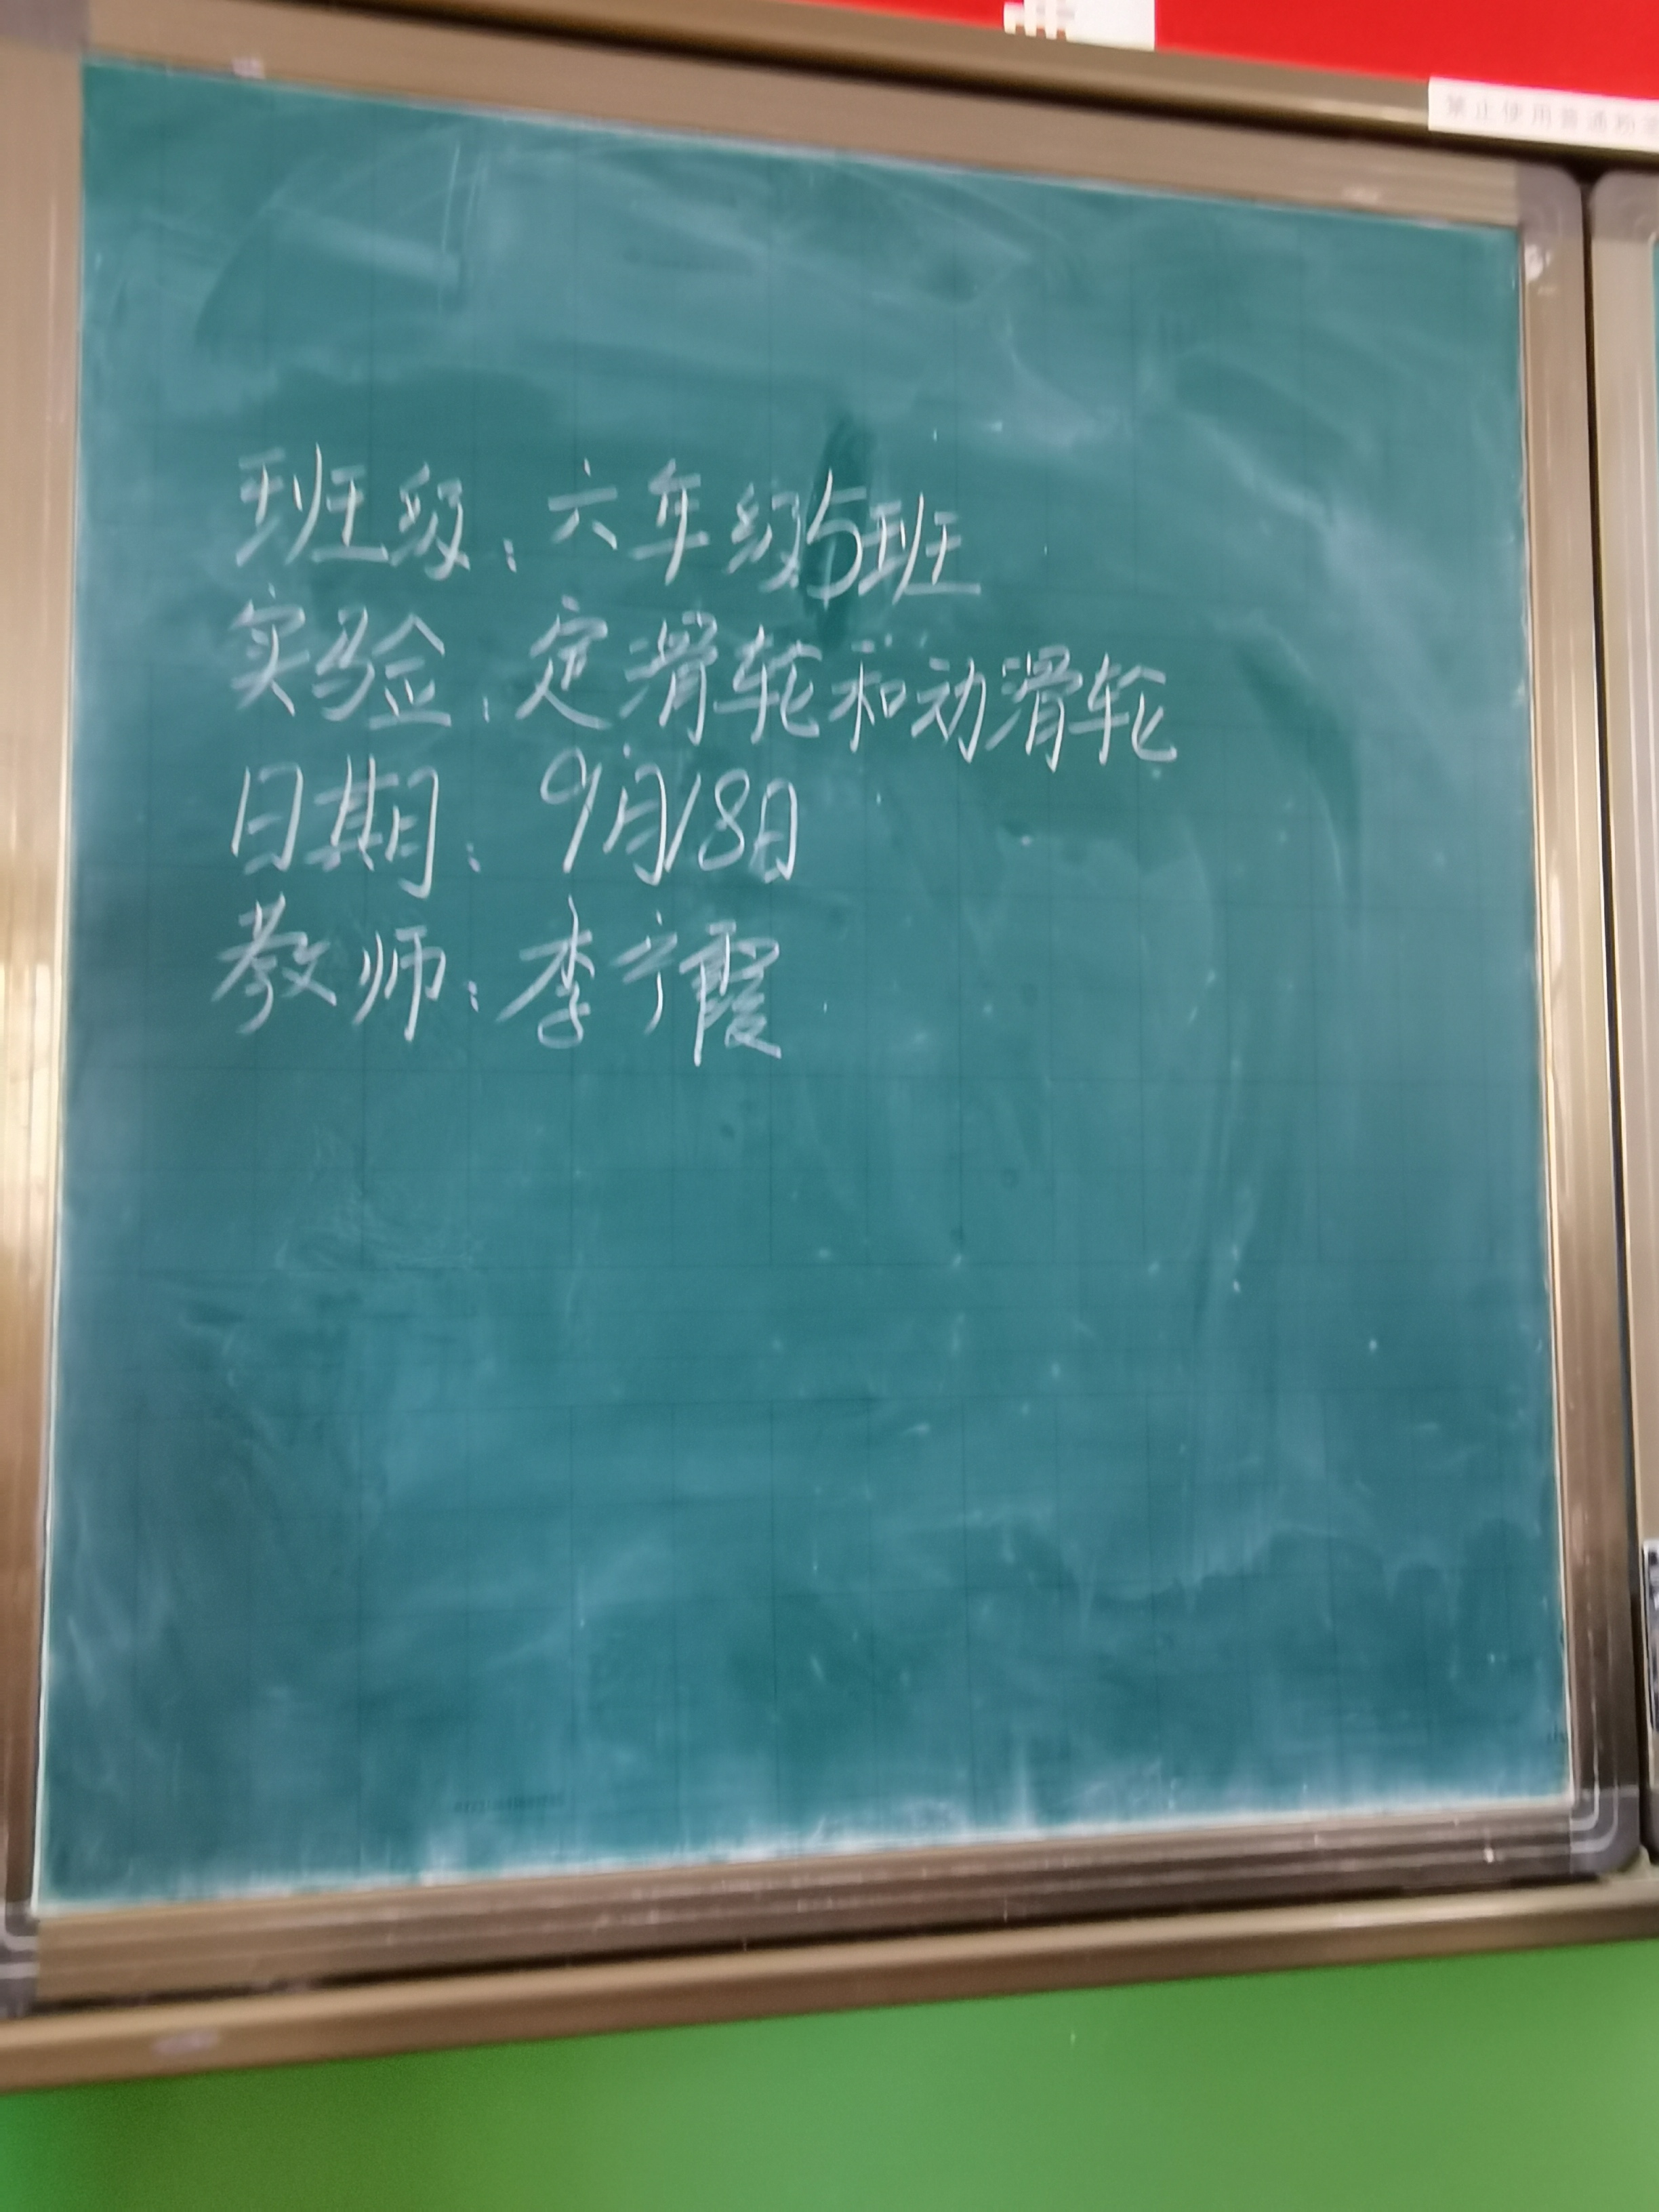 禁止使用普通粉
班级:六年级5班
实验:定滑轮和动滑轮
日期:9月18日
教师:李宁霞